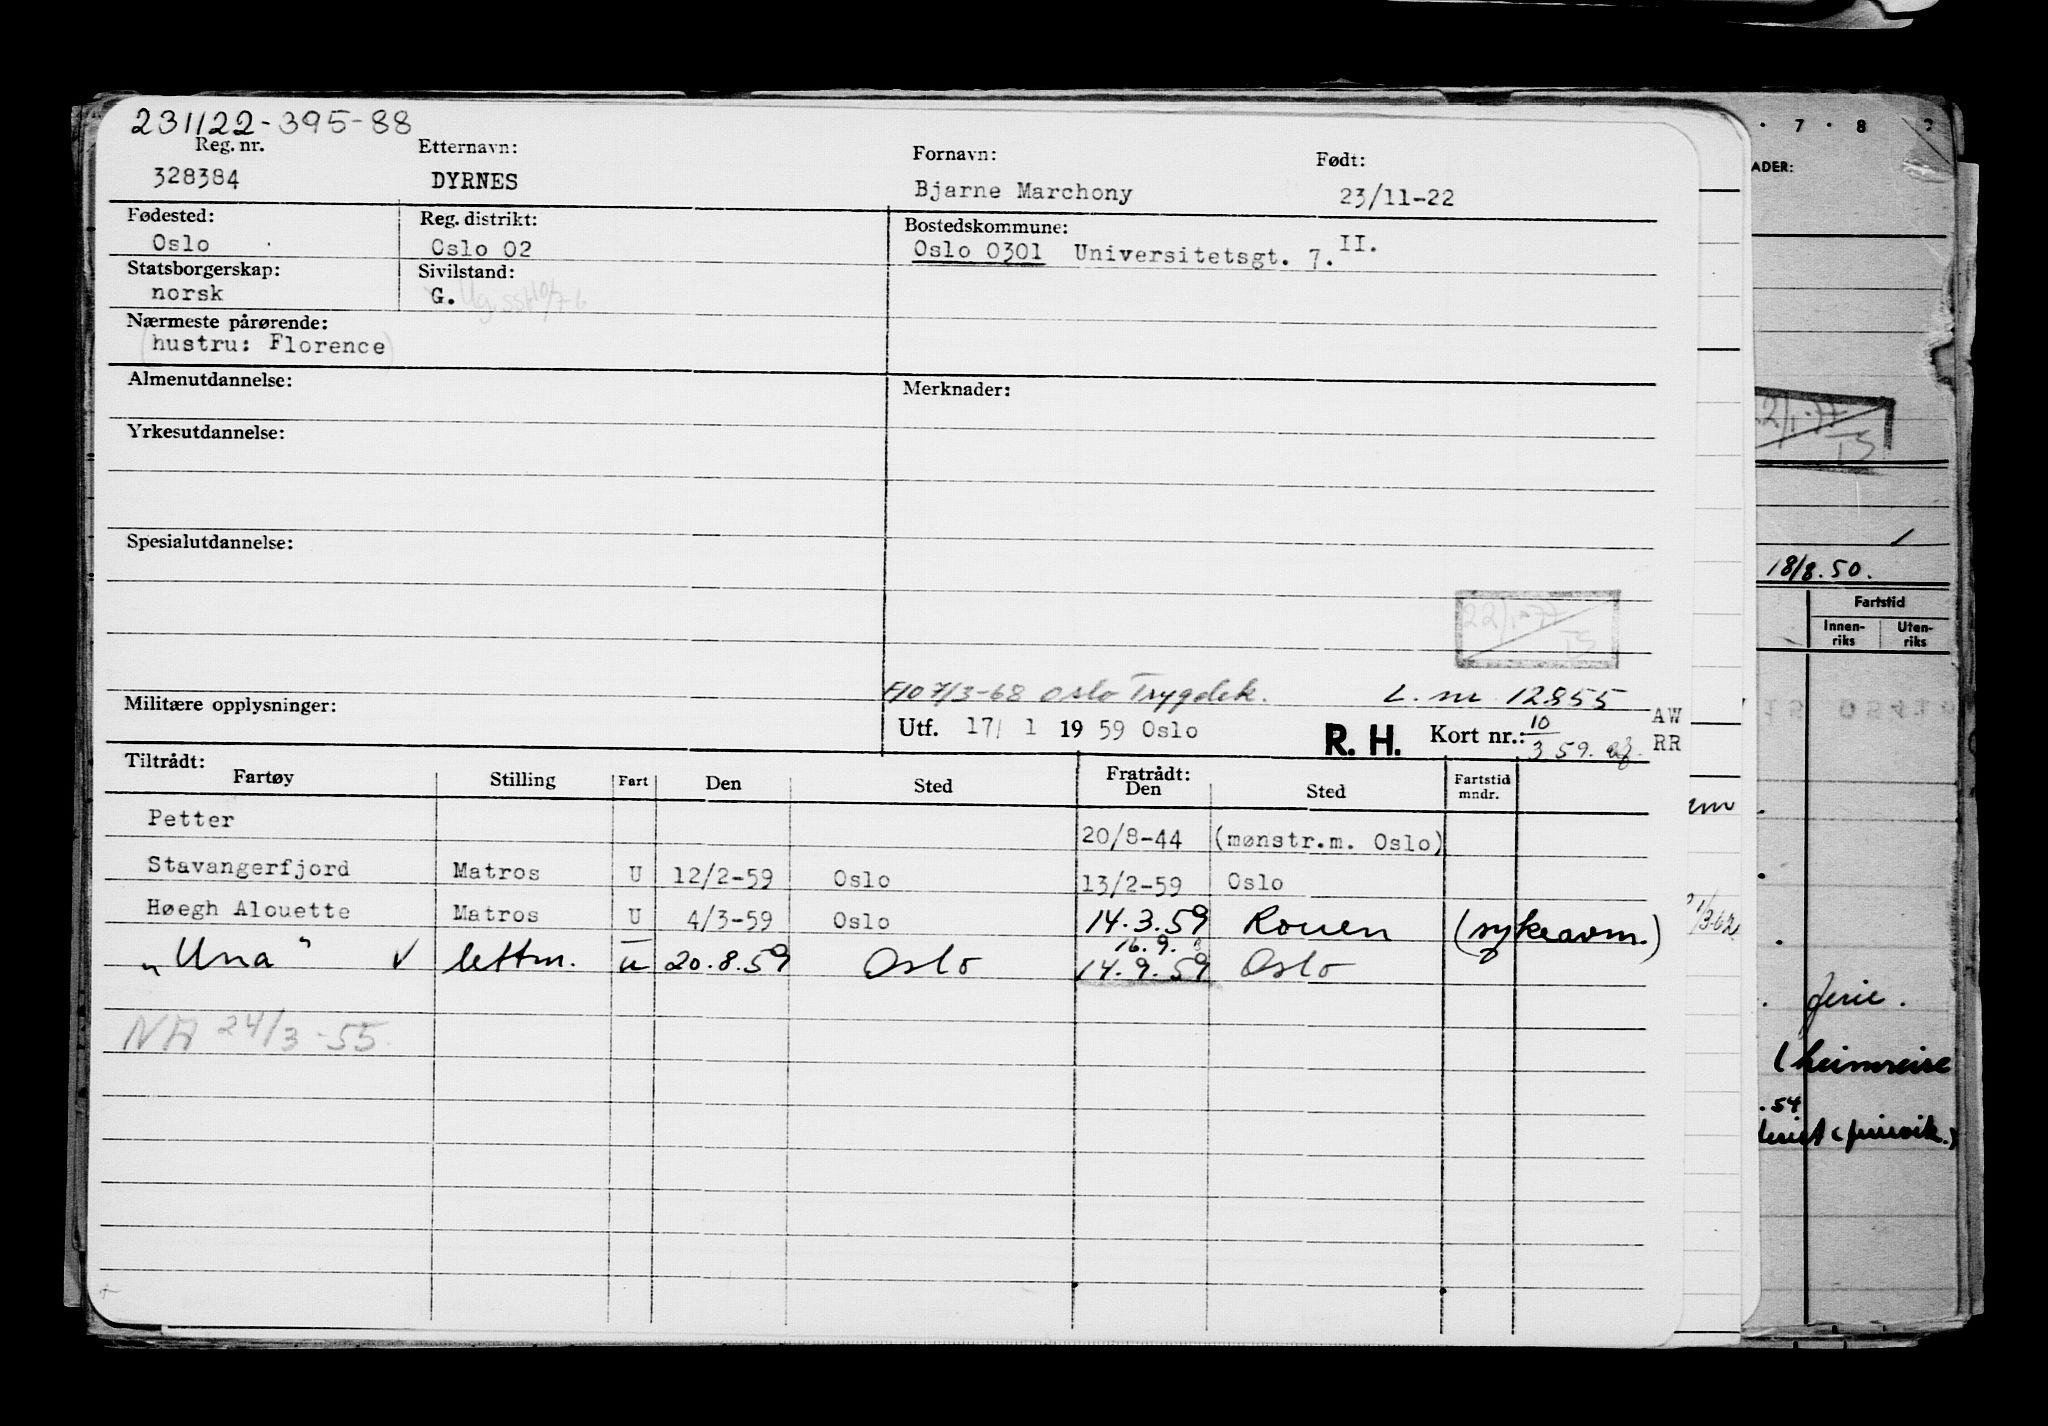 231122-395-88
Reg. nr. Etternavn: Fornavn: Født:
328384 DYRNES Bjarne Marchony 23/11-22
Fødested: Reg. distrikt: Bostedskommune:
Oslo Oslo 02 Oslo 0301 Universitetsgt. 7. II.
Statsborgerskap: Sivilstand:
norsk G. Ug.
Nærmeste pårørende:
(hustru: Florence)
Almenutdannelse: Merknader:
Yrkesutdannelse:
Spesialutdannelse:
22/1-77
TS
F10 7/3-68 Oslo Trygdek. L. nr 12855
Militære opplysninger: Utf. 17/ 1 19 59 Oslo R. H. Kort nr.: 10/3 59. AW
RR
Tiltrådt: Fratrådt:
Fartøy Stilling Fart Den Sted Den Sted Fartstid mndr.
Petter 20/8-44 (mønstr.m. Oslo)
Stavangerfjord Matros U 12/2-59 Oslo 13/2-59 Oslo
Høegh Alouette Matros U 4/3-59 Oslo 14.3.59 Rouen (sykeavm.)
16.9.
„Una" √ lettm. u 20.8.59 Oslo 14.9.59 Oslo
NA 24/3-55
7 . 8
ADER:
22/1-77
TS
18/8.50.
Fartstid
Innen-riks Uten-riks
ferie.
(heimreise
.54